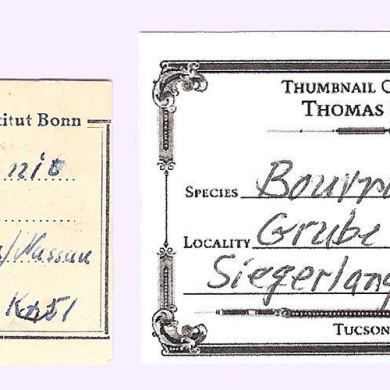 titut Bonn
nit
/Nassau
THUMBNAIL C
THOMAS
SPECIES Bourn
LOCALITY Grube
Siegerlan
TUCSON